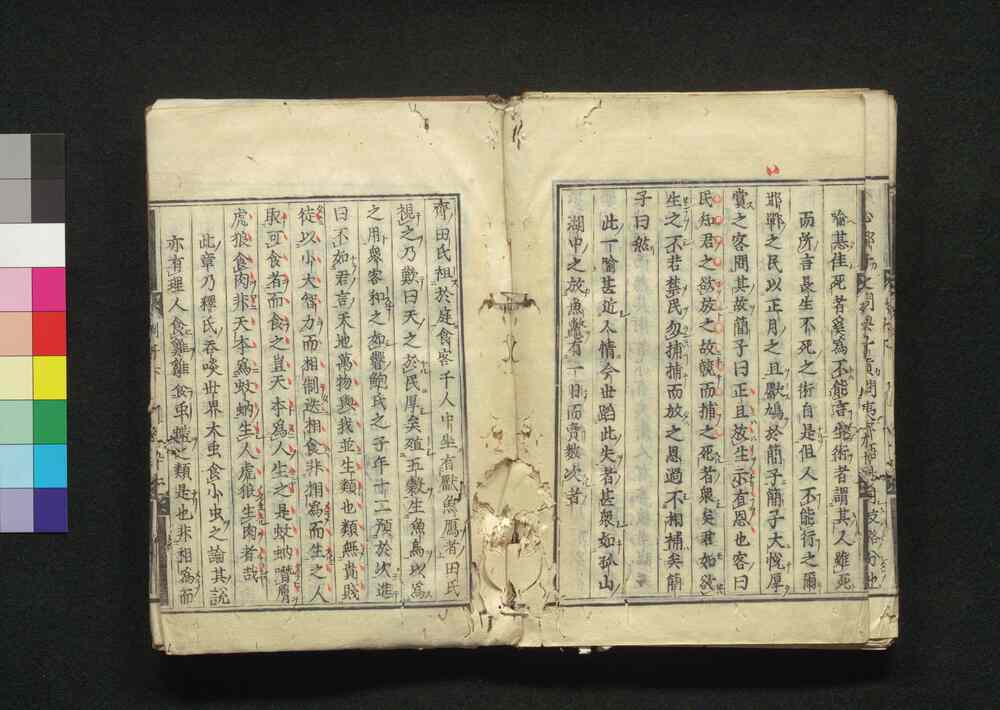 喻甚佳死者奚爲不能言生術者謂其人雖死
而所言長生不死之術自是但人不能行之爾
邯鄲之民以正月之旦獻鳩於簡子簡子大悅厚
賞之客問其故簡子曰正旦放生示有恩也客曰
民知君之欲放之故競而捕之死者衆矣君如欲
生之不若禁民勿捕捕而放之恩過不相補矣簡
子曰然
此一喻甚近人情今世蹈此失者甚衆如孤山
湖中之放魚鱉有一日而賣數次者
齊田氏祖於庭食客千人中坐有獻魚鴈者田氏
視之乃歎曰天之於民厚矣殖五穀生魚鳥以爲
之用衆客和之如響鮑氏之子年十二預於次進
曰不如君言天地萬物與我並生類也類無貴賤
徒以小大智力而相制迭相食非相爲而生之人
取可食者而食之豈天本爲人生之且蚊蚋噆膚
虎狼食肉非天本爲蚊蚋生人虎狼生肉者哉
此章乃釋氏吞啖世界大虫食小虫之論其説
亦有理人食雞雞食虫蟻之類是也非相爲而